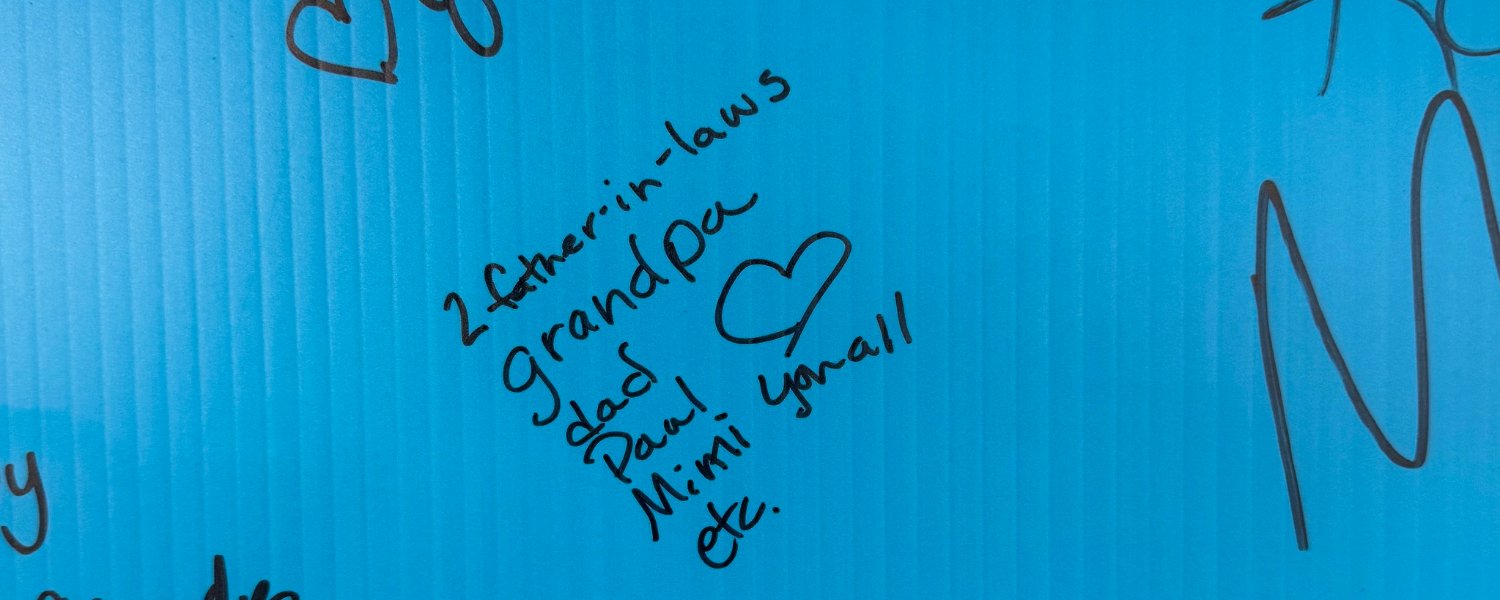 2 father-in-laws
grandpa
dad
Paul
Mimi
etc.
you all
y